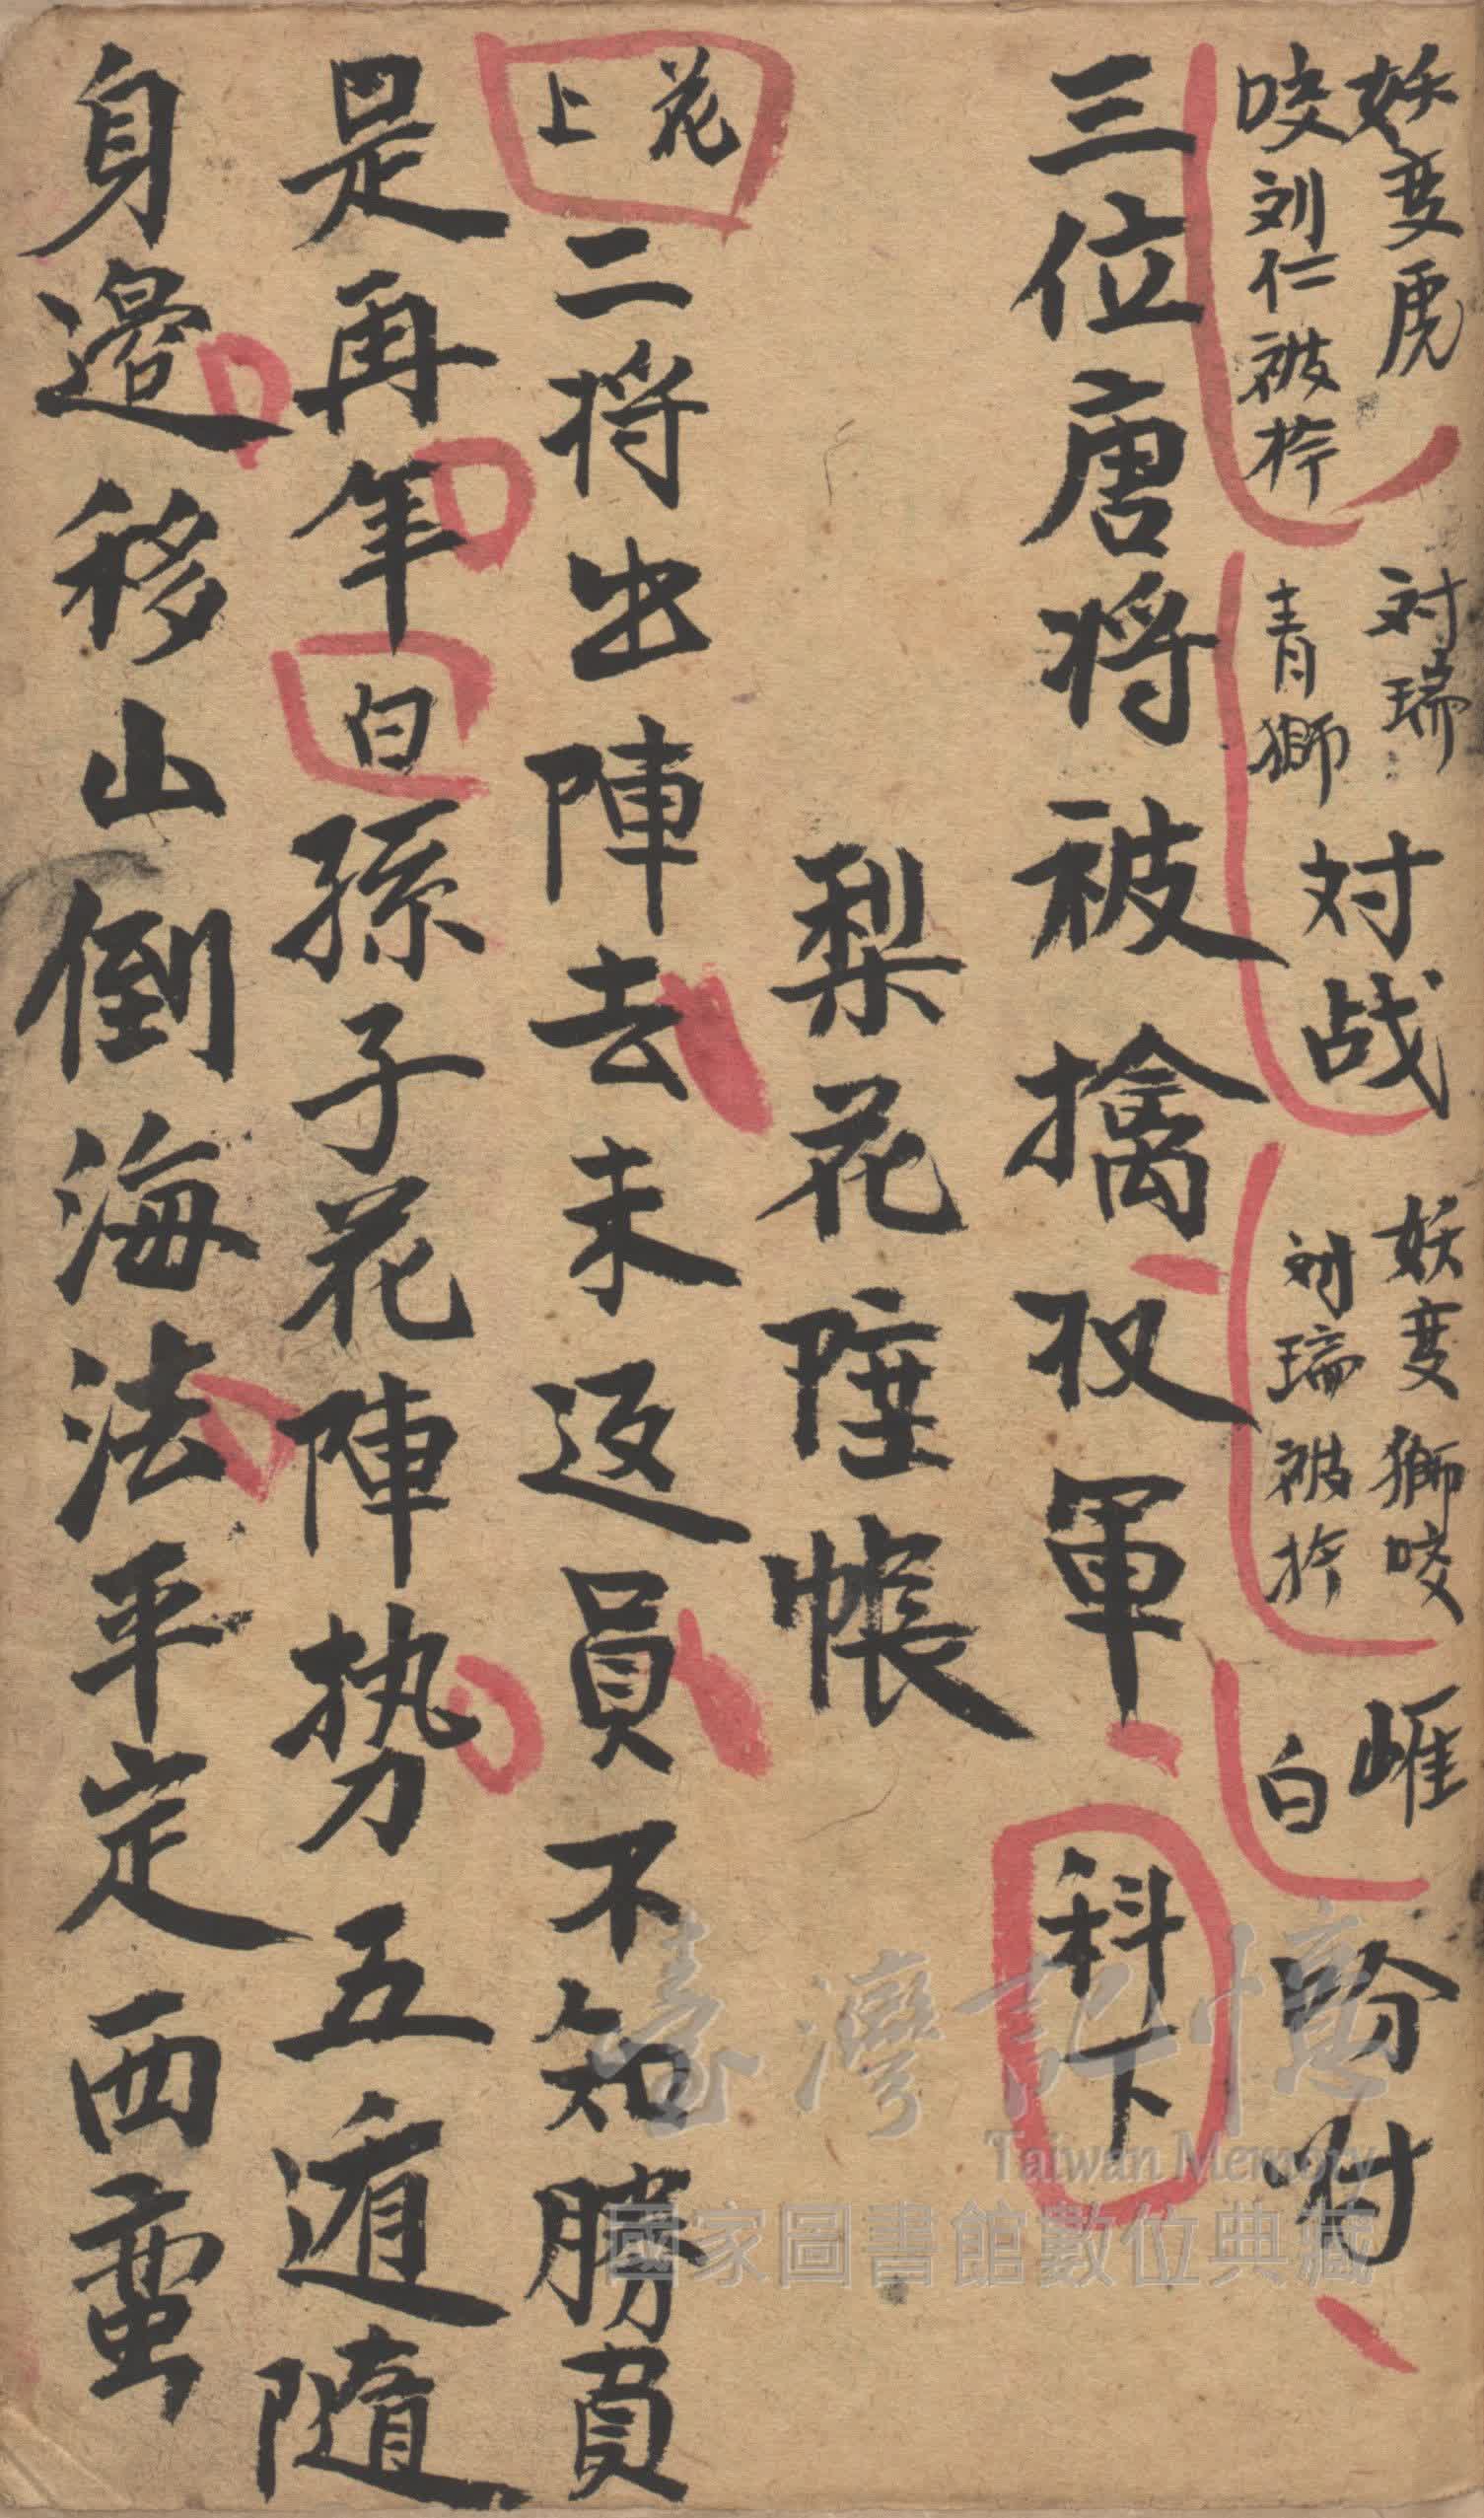 妖变虎
咬刘仁被拎
対瑞
青獅
対战
妖变獅咬
対瑞被拎
崕
白
吩咐
三位唐将被擒収軍
科下
梨花陞帳
花
上
二将出陣去未返員不知勝負
是再年
白
孫子花陣势五遁隨
身邊移山倒海法平定西蛮
臺灣記憶
Taiwan Memory
國家圖書館數位典藏